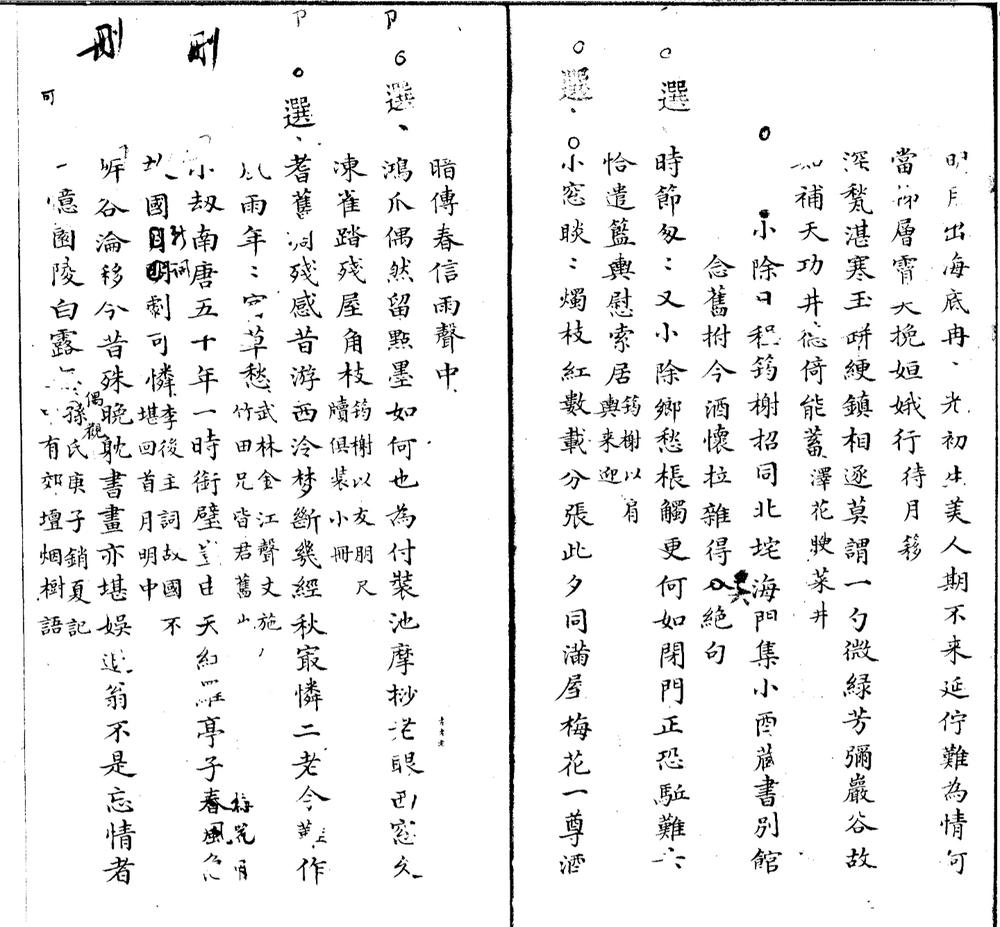 明月出海底冉、光初生美人期不来延佇難為情何
當昇層霄大挽姮娥行 待月簃
深甃湛寒玉缾綆鎮相逐莫謂一勺微緑芳彌巖谷故
補天功井德倚能蓄 澤花駛菜井
小除日程筠榭招同北垞海門集小酉藏書別館
念舊拊今酒懷拉雜得絕句
選 時節匆:又小除鄉愁棖觸更何如閉門正恐駈難
恰遣籃輿慰索居 筠榭以肩輿来迎
選、小窓睒:燭枝紅數載分張此夕同滿屋梅花一尊酒
暗傳春信雨聲中
選、鴻爪偶然留點墨如何也為付裝池摩挱老眼西窓久
凍雀踏殘屋角枝 筠榭以友朋尺牘俱装小冊
選、耆舊凋殘感昔游西泠梦斷幾經秋冣憐二老今作
雨年:宿草愁 武林金江聲文施竹田兄皆君舊
刪 小刼南唐五十年一時衔壁豈由天紅羅亭子春風
故國 新詞 劇可憐 李後主詞故國不堪回首月明中
刪 岸谷淪移今昔殊晚躭書畫亦堪娛退翁不是忘情者
可 一憶園陵白露 偶觀孫氏庚子銷夏記有郊壇烟樹語